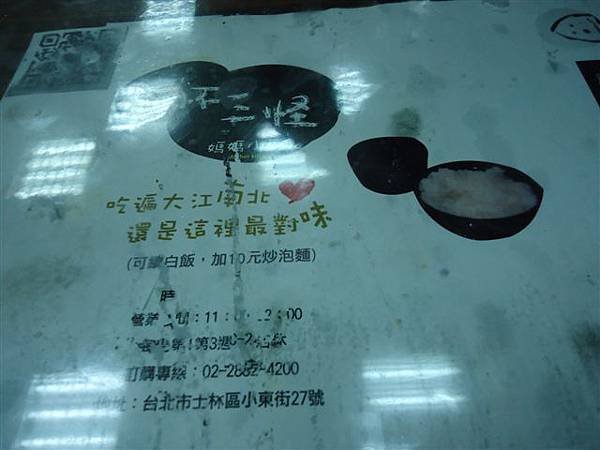 不三怪
媽媽小
吃遍大江南北
還是這裡最對味
(可續白飯，加10元炒泡麵)
時
營業 間：11: 2:00
第3週
訂購專線：02-2882-4200
地址：台北市士林區小東街27號